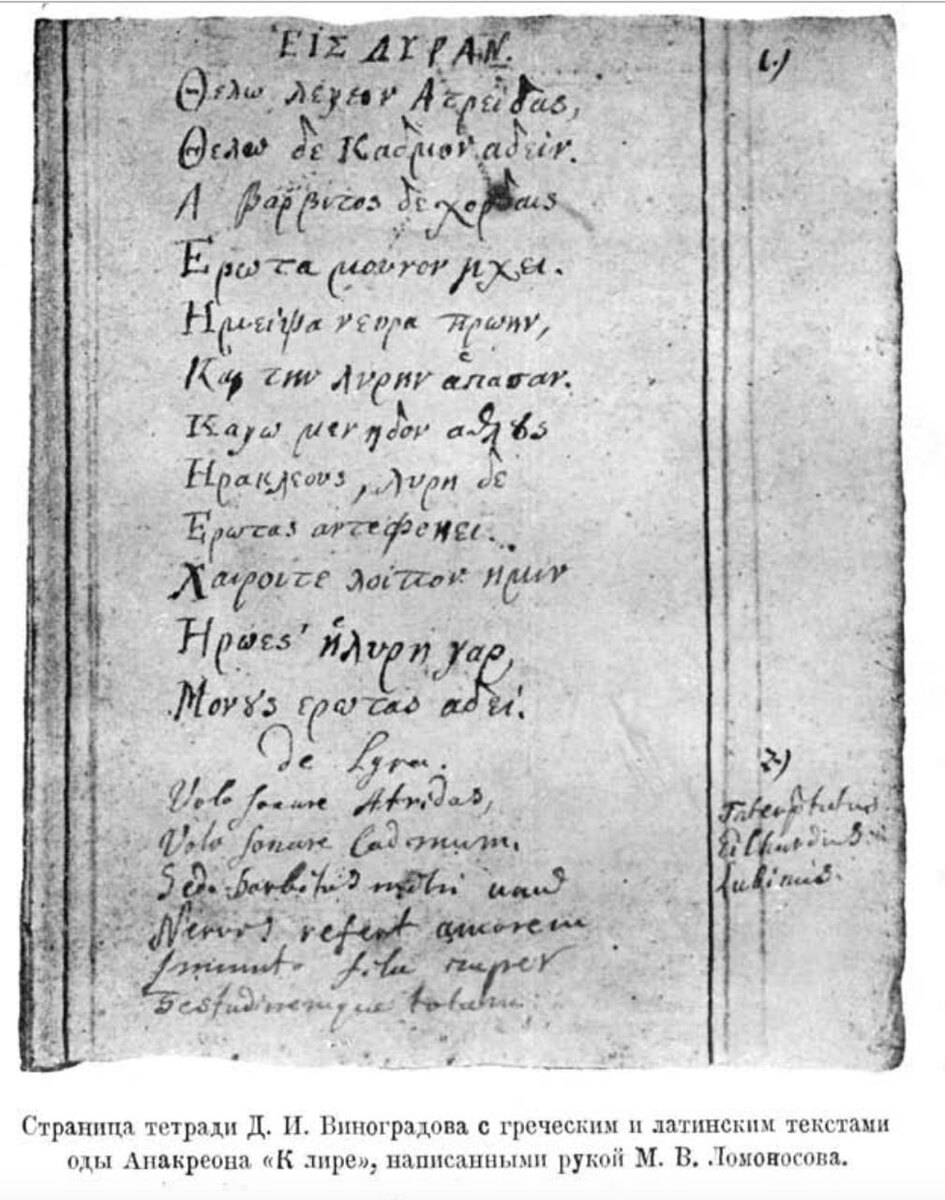 ΕΙΣ ΛΥΡΑΝ.
1.)
Θελω λεγειν Ατρείδας,
Θελω δε Καδμον αδειν.
Α βαρβιτος δε χορδαις
Ερωτα μουνον ηχει.
Ημειψα νευρα πρωην,
Και την λυρην ἁπασαν.
Καγω μεν ηδον αθλȣς
Ηρακλεους, λυρη δε
Ερωτας αντεφωνει.
Χαιροιτε λοιπον ημιν
Ηρωες' ἡ λυρη γαρ,
Μονȣς ερωτας αδει.
de Lyra.
2.)
Volo sonare Atridas,
Volo sonare Cadmum.
Sed barbitus mihi
Nervis refert amorem
fila nuper
Testudinemque totam
Interpretatus
Eilhardus
Lubinus.
Страница тетради Д. И. Виноградова с греческим и латинским текстами
оды Анакреона «К лире», написанными рукой М. В. Ломоносова.